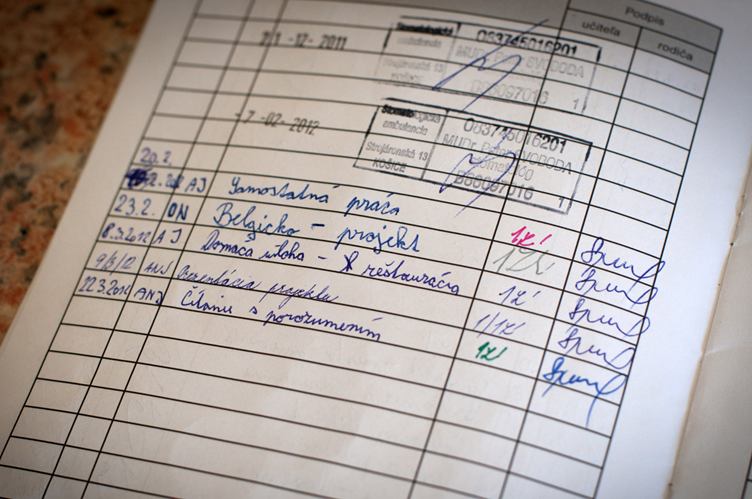 Podpis
učiteľa rodiča
-12- 2011 Stomatologická ambulancia Strojárenská 13 KOŠICE 083745016201 MUDr. Peter SVOBODA D08097016 1
-7 -02- 2012 Stomatologická ambulancia Strojárenská 13 KOŠICE 083745016201 MUDr. Peter SVOBODA D08097016 1
20. 2.
AJ Samostatná práca 1
23.2. ON Belgicko - projekt 1
8.3.2012 AJ Domáca úloha - V reštaurácia 1
9/3/12 ANJ Prezentácia projektu 1/1
22.3.2012 ANJ Čítanie s porozumením 1